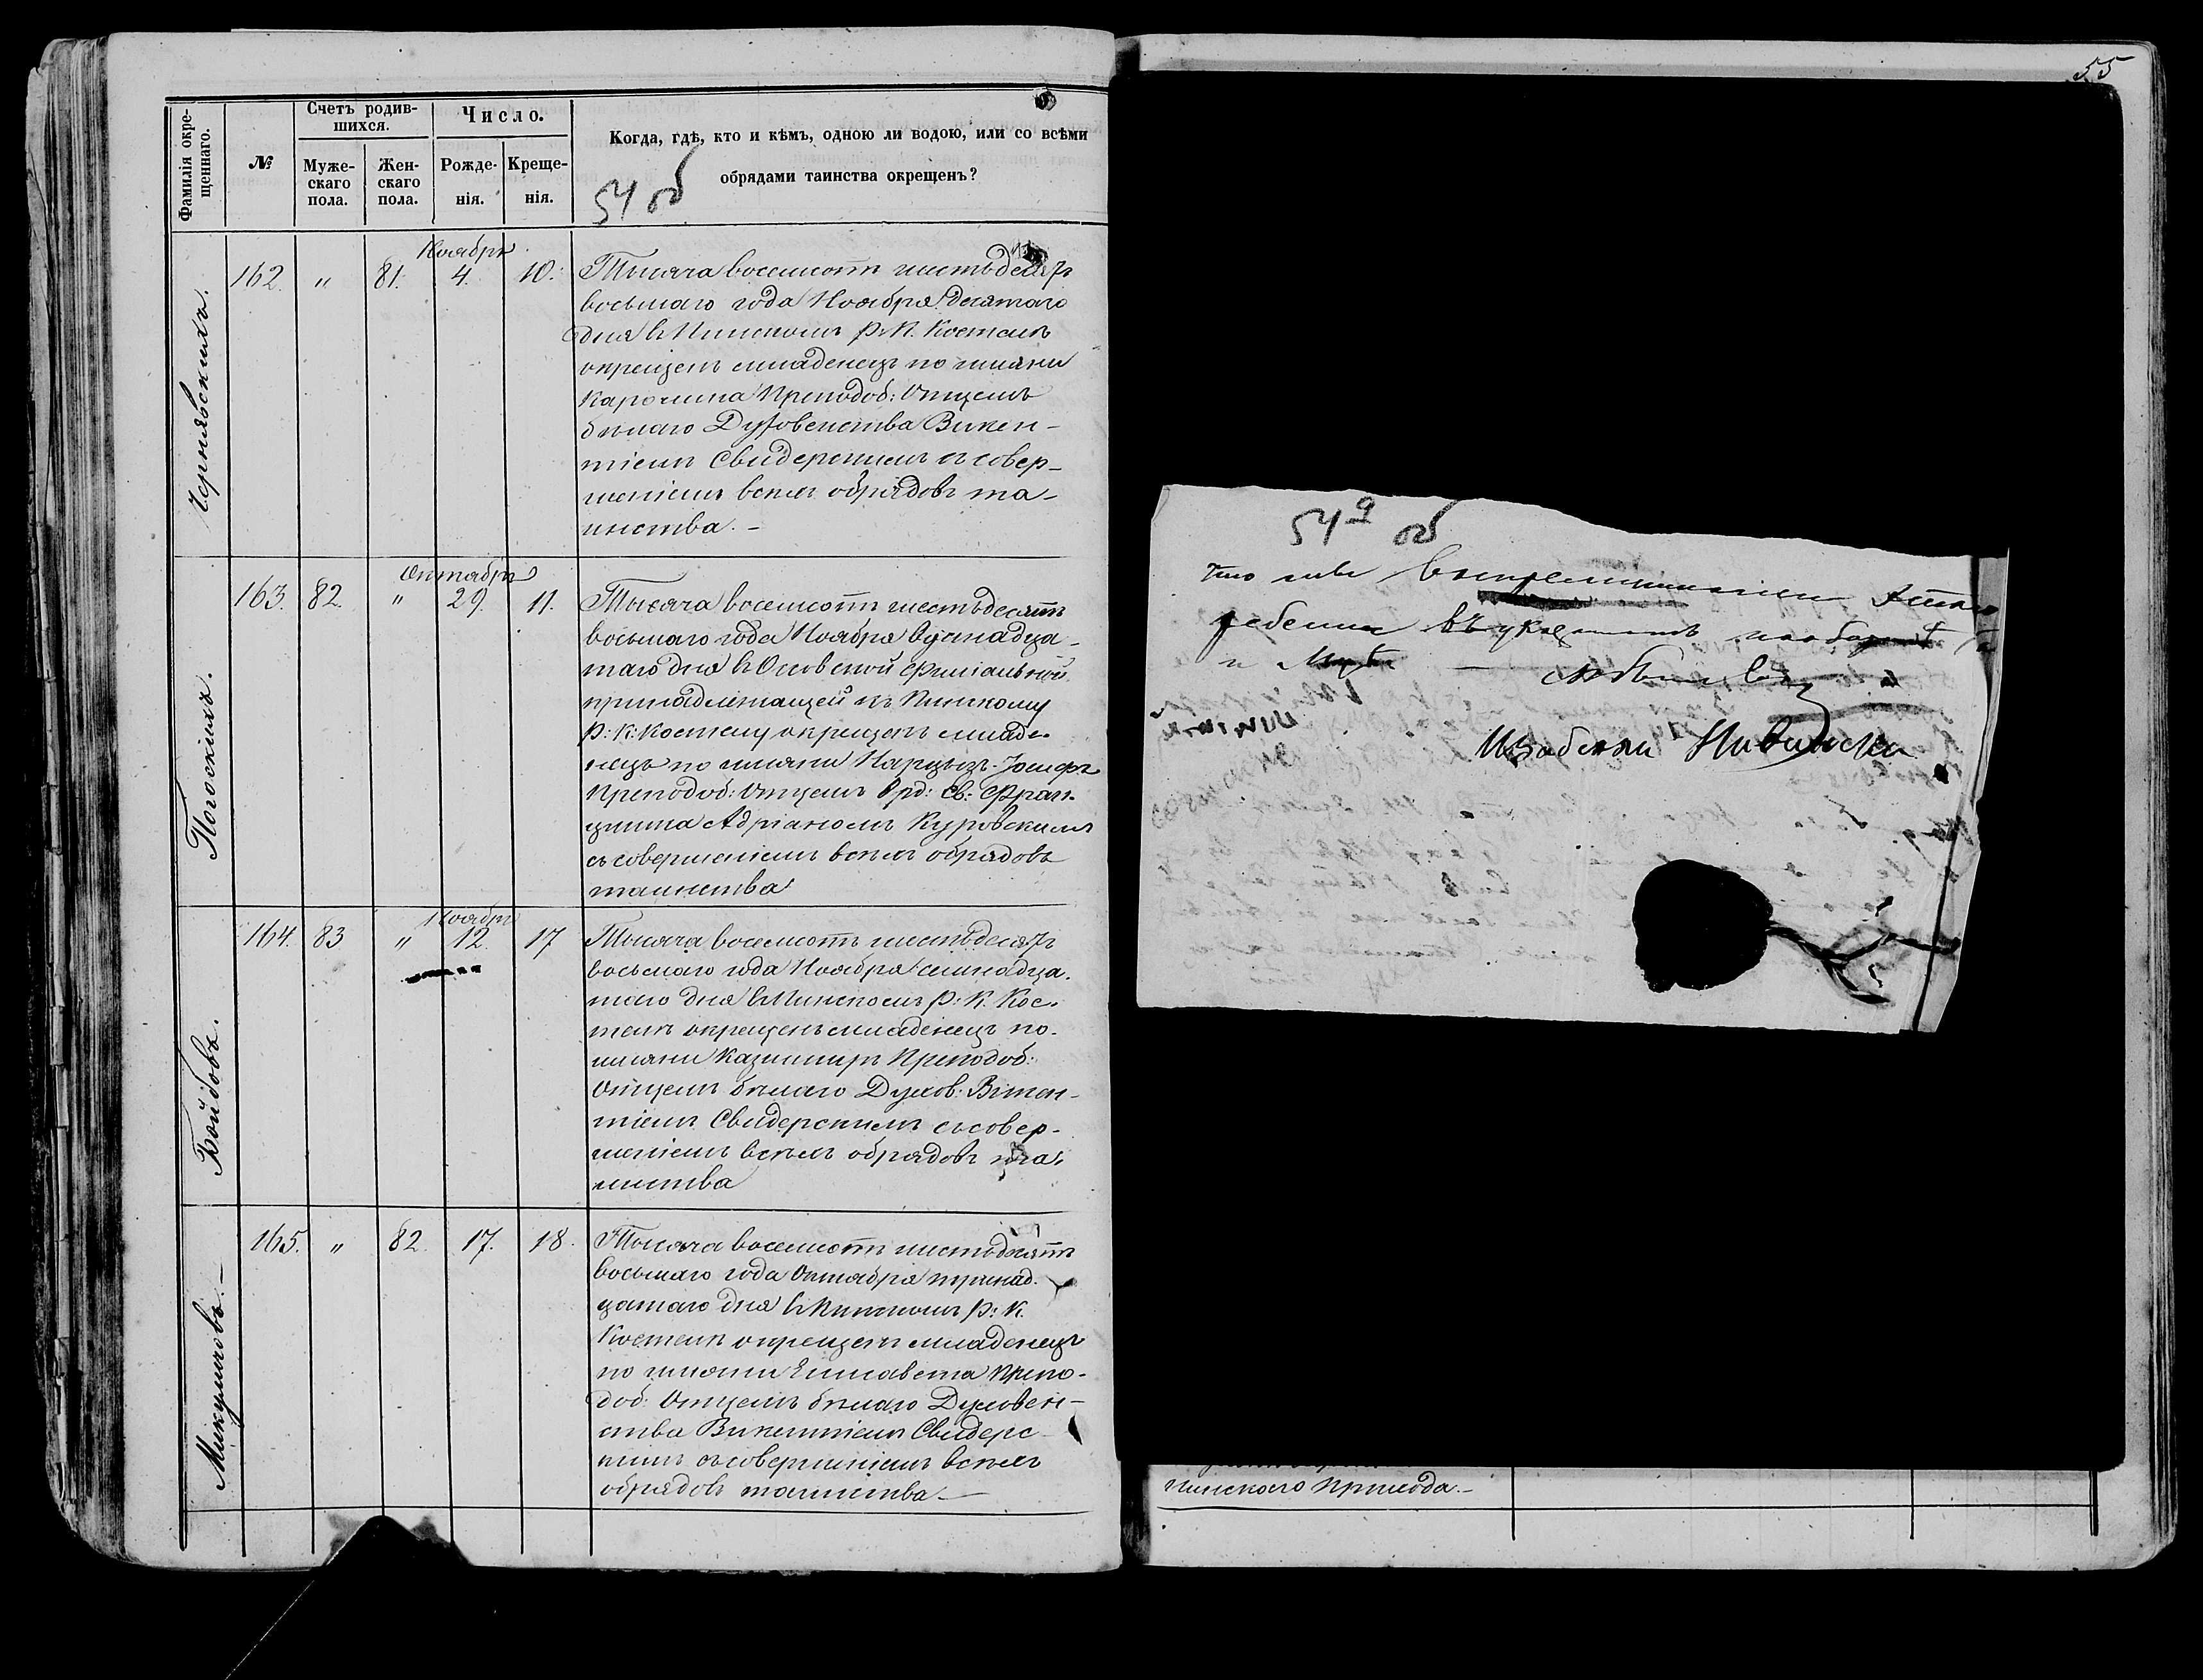 55
Фамилія окре-
щеннаго.
№
Счетъ родив-
шихся.
Муже-
скаго
пола.
Жен-
скаго
пола.
Число.
Рожде-
нія.
Креще-
нія.
Когда, гдѣ, кто и кѣмъ, одною ли водою, или со всѣми
обрядами таинства окрещенъ?
54 об
Чернявскихъ.
Ноябрь
162. " 81. 4. 10.
Тысяча восемсотъ шестьдесятъ
восьмаго года Ноября десятаго
дня въ Пинскомъ Р: К. Костелѣ
окрещенъ младенецъ по имяни
Каролина Преподоб: Отцемъ
бѣлаго Духовенства Викен-
тіемъ Свидерскимъ съ совер-
шеніемъ всѣхъ обрядовъ та-
инства. –
Погоскихъ.
Октябрь
163. 82. " 29. 11.
Тысяча восемсотъ шестьдесятъ
восьмаго года Ноября одинадца-
таго дня въ Филіальной
принадлежащей къ Пинскому
Р: К: Костелу окрещенъ младе-
нецъ по имяни Нарцызъ-Іосифъ
Преподоб: Отцемъ Орд: Св: Фран-
циска Адріаномъ Куровскимъ
съ совершеніемъ всѣхъ обрядовъ
таинства
Войдовъ.
Ноябрь
164. 83 " 12. 17
Тысяча восемсотъ шестьдесятъ
восьмаго года Ноября семнадца-
таго дня въ Пинскомъ Р: К. Кос-
телѣ окрещенъ младенецъ по-
имяни Казимиръ Преподоб:
Отцемъ бѣлаго Духов: Викен-
тіемъ Свидерскимъ съ совер-
шеніемъ всѣхъ обрядовъ та-
инства
Микуличъ. –
165. " 82. 17. 18.
Тысяча восемсотъ шестьдесятъ
восьмаго года Октября тринад-
цатаго дня въ Пинскомъ Р: К.
Костелѣ окрещенъ младенецъ
по имяни Елисавета Препо-
доб: Отцемъ бѣлаго Духовен-
ства Викентіемъ Свидерс-
кимъ съ совершеніемъ всѣхъ
обрядовъ таинства –
54а об
что
ребенка въ
и
Изабелла
Пинскаго Прихода. –